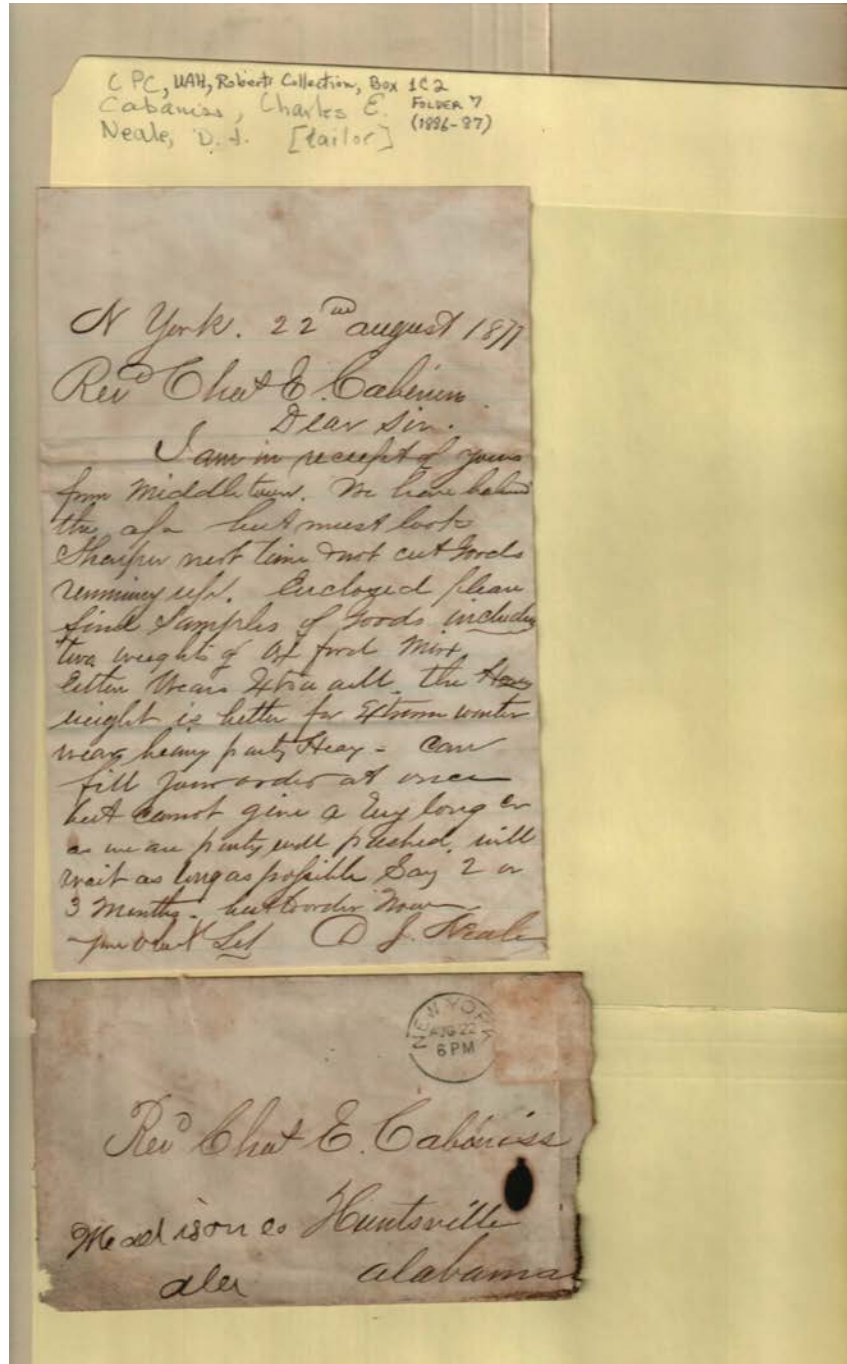 C PC, UAH, Roberts Collection, Box 1C2
Cabaniss, Charles E. FOLDER 7
Neale, D. J. [tailor] (1886-87)
N York. 22nd august 1877
Revd Chas E. Cabiniss
Dear Sir.
I am in receipt of yours
from Middletown. We have
the but must look
Sharper next time & not cut Goods
running up. Enclosed please
find Samples of Goods including
two weights of Ox ford Mix
Wears the Heavy
weight is better for Extreme winter
wear heavy Heay - Can
fill your order at once
but cannot give a long Cr
as we are well pushed, will
wait as long as possible Say 2 or
3 Months. but order Now
D J. Neale
NEW YORK
AUG 22
6 PM
Revd Chas E. Cabiniss
Madison co Huntsville
ala alabama